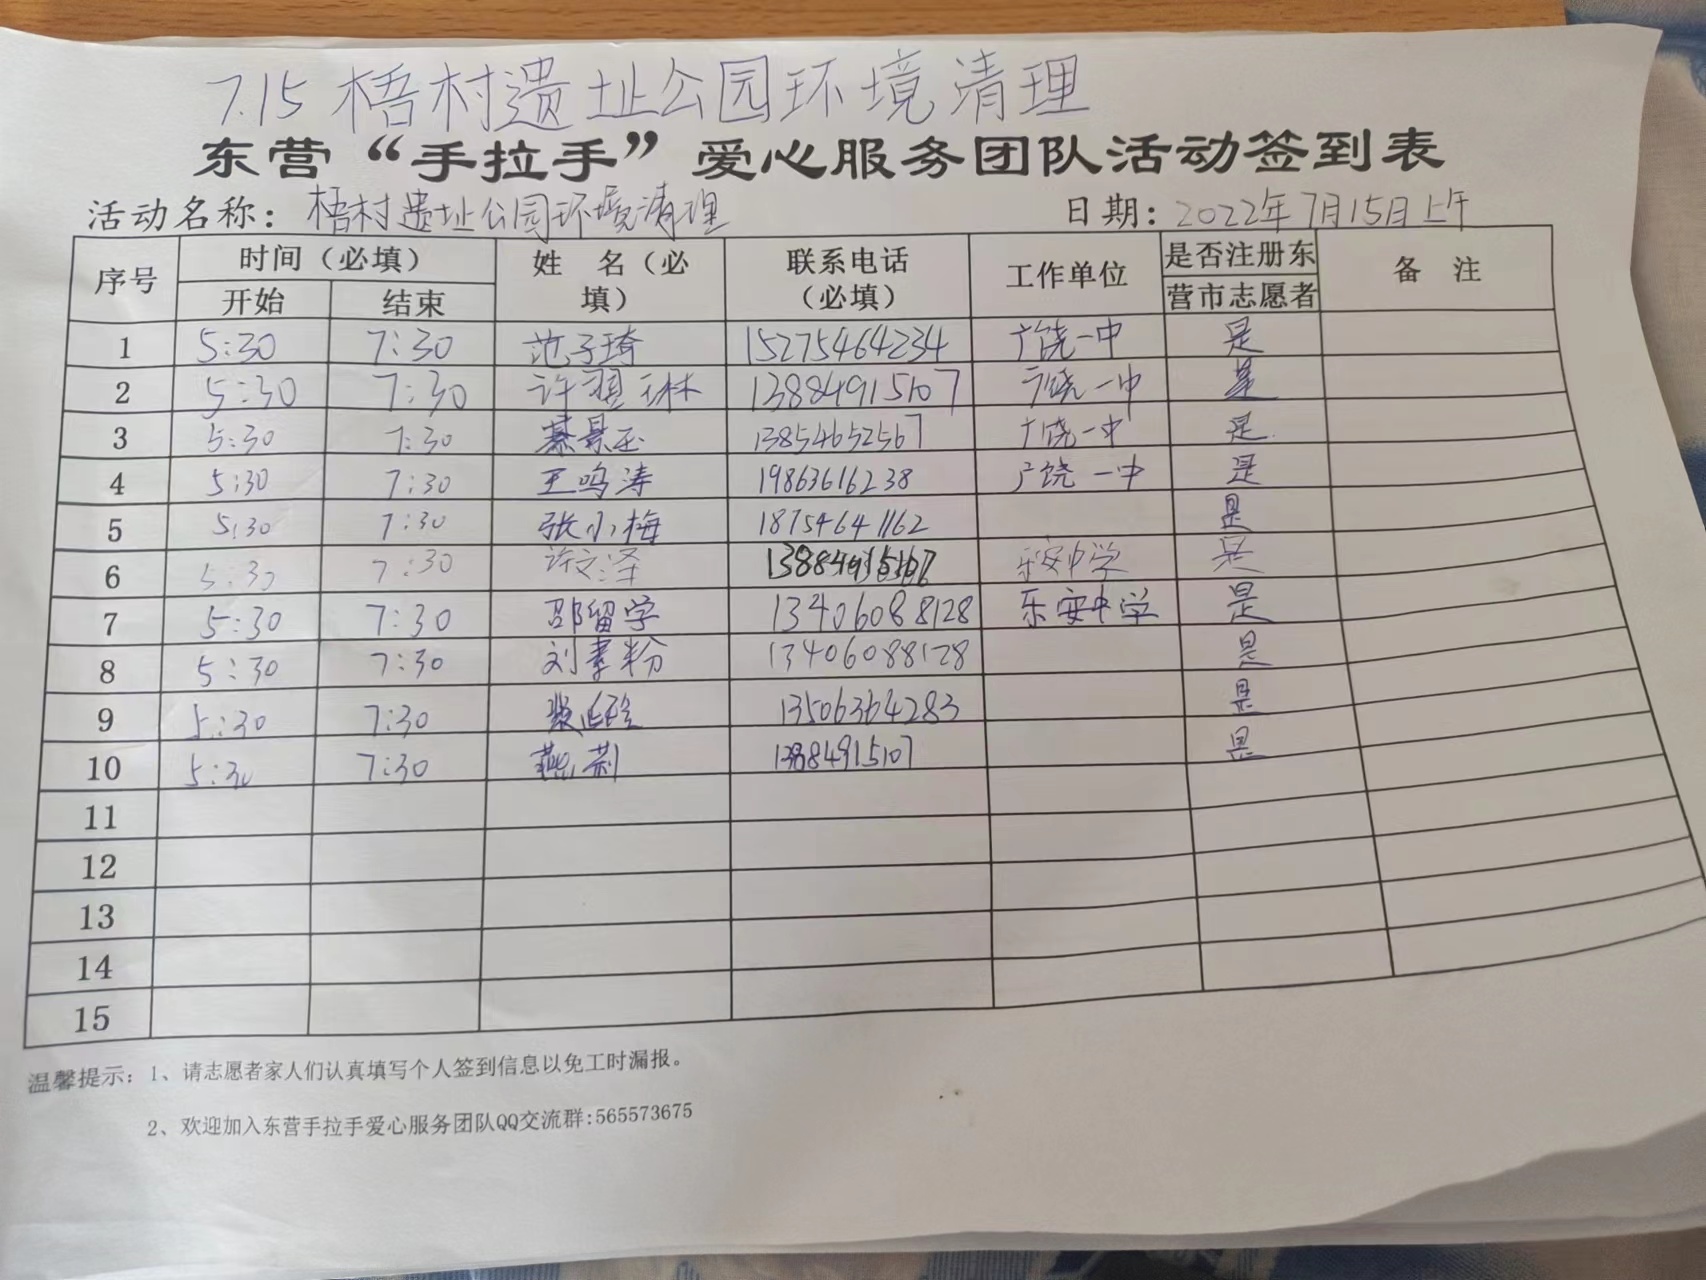 7.15 梧村遗址公园环境清理
东营“手拉手”爱心服务团队活动签到表
活动名称：梧村遗址公园环境清理 日期：2022年7月15日上午
序号 时间（必填） 姓 名（必填） 联系电话（必填） 工作单位 是否注册东营市志愿者 备 注
开始 结束
1 5:30 7:30 范子琦 15275464234 广饶一中 是
2 5:30 7:30 许翌琳 13884915107 广饶一中 是
3 5:30 7:30 綦景玉 13854652567 广饶一中 是
4 5:30 7:30 王鸣涛 19863616238 广饶一中 是
5 5:30 7:30 张小梅 18754641162 是
6 5:30 7:30 许文泽 乐安中学 是
7 5:30 7:30 邵留学 13406088128 乐安中学 是
8 5:30 7:30 刘素粉 13406088128 是
9 5:30 7:30 13506364283 是
10 5:30 7:30 燕莉 13884915107 是
11
12
13
14
15
温馨提示：1、请志愿者家人们认真填写个人签到信息以免工时漏报。
2、欢迎加入东营手拉手爱心服务团队QQ交流群:565573675